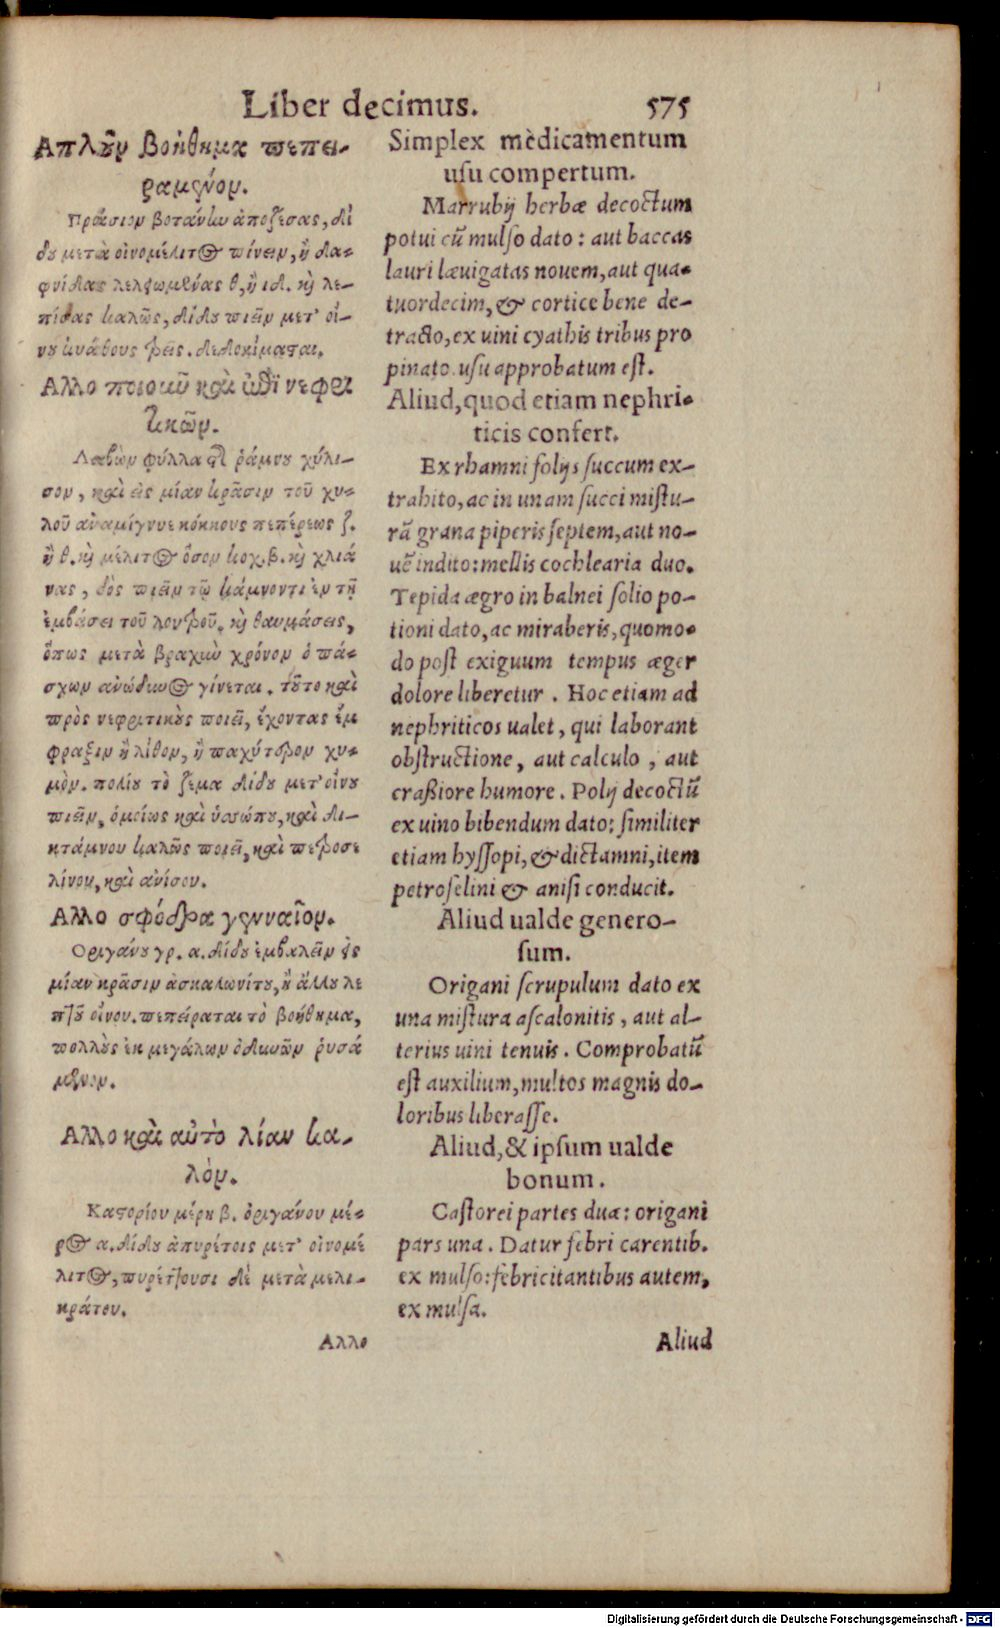 Liber decimus. 575
Απλοῦν βοήθημα πεπει-
ραμένον.
Πράσιον βοτάνην ἀποζέσας, δί
δου μετὰ οἰνομέλιτος πίνειν, ἢ δα-
φνίδας λελειωμένας θ, ἢ ιδ. καὶ λε-
πίσας καλῶς, δίδου πιεῖν μετ' οἴ-
νου κυάθους τρεῖς. δεδοκίμασαι.
Αλλο ποιοῦν καὶ ἐπὶ νεφρι
τικῶν.
Λαβὼν φύλλα τῆ ῥάμνου χύλι-
σον, καὶ εἰς μίαν κρᾶσιν τοῦ χυ-
λοῦ ἀναμίγνυε κόκκους πεπέρεως ζ.
ἢ θ. καὶ μέλιτος ὅσον κοχ. β. καὶ χλιά
νας, δὸς πιεῖν τῷ κάμνοντι ἐν τῇ
ἐμβάσει τοῦ λουτροῦ. καὶ θαυμάσεις,
ὅπως μετὰ βραχὺν χρόνον ὁ πά-
σχων ἀνώδυνος γίνεται. τοῦτο καὶ
πρὸς νεφριτικοὺς ποιεῖ, ἔχοντας ἔμ
φραξιν ἢ λίθον, ἢ παχύτερον χυ-
μὸν. πολίου τὸ ζέμα δίδου μετ' οἴνου
πιεῖν, ὁμοίως καὶ ὑσσώπου, καὶ δι-
κτάμνου καλῶς ποιεῖ, καὶ πετροσε
λίνου, καὶ ἀνίσου.
Αλλο σφόδρα γενναῖον.
Οριγάνου γρ. α. δίδου ἐμβαλεῖν εἰς
μίαν κρᾶσιν ἀσκαλωνίτου, ἢ ἄλλου λε
πτοῦ οἴνου. πεπείραται τὸ βοήθημα,
πολλοὺς ἐκ μεγάλων ὀδυνῶν ῥυσά
μενον.
Αλλο καὶ αὐτὸ λίαν κα-
λὸν.
Καστορίου μέρη β. ὀριγάνου μέ-
ρος α. δίδου ἀπυρέτοις μετ' οἰνομέ
λιτος, πυρέττουσι δὲ μετὰ μελι-
κράτου.
Αλλο
Simplex mèdicamentum
usu compertum.
Marrubij herbæ decoctum
potui cũ mulso dato: aut baccas
lauri læuigatas nouem, aut qua-
tuordecim, & cortice bene de-
tracto, ex uini cyathis tribus pro
pinato. usu approbatum est.
Aliud, quod etiam nephri-
ticis confert.
Ex rhamni folijs succum ex-
trahito, ac in unam succi mistu-
rã grana piperis septem, aut no-
uẽ indito: mellis cochlearia duo.
Tepida ægro in balnei solio po-
tioni dato, ac miraberis, quomo-
do post exiguum tempus æger
dolore liberetur. Hoc etiam ad
nephriticos ualet, qui laborant
obstructione, aut calculo, aut
craßiore humore. Polij decoctũ
ex uino bibendum dato: similiter
etiam hyssopi, & dictamni, item
petroselini & anisi conducit.
Aliud ualde genero-
sum.
Origani scrupulum dato ex
una mistura ascalonitis, aut al-
terius uini tenuis. Comprobatũ
est auxilium, multos magnis do-
loribus liberasse.
Aliud, & ipsum ualde
bonum.
Castorei partes duæ: origani
pars una. Datur febri carentib.
ex mulso: febricitantibus autem,
ex mulsa.
Aliud
Digitalisierung gefördert durch die Deutsche Forschungsgemeinschaft - DFG